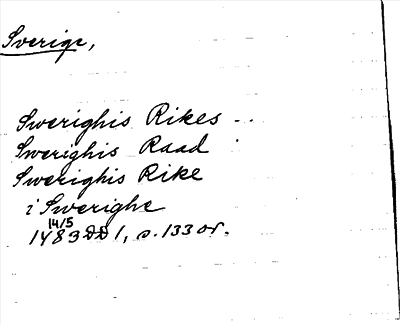 Sverige,
Swerighis Rikes --
Swerighis Raad
Swerighis Rike
i Swerighe
14/5
1483 DD 1, s. 133 or.